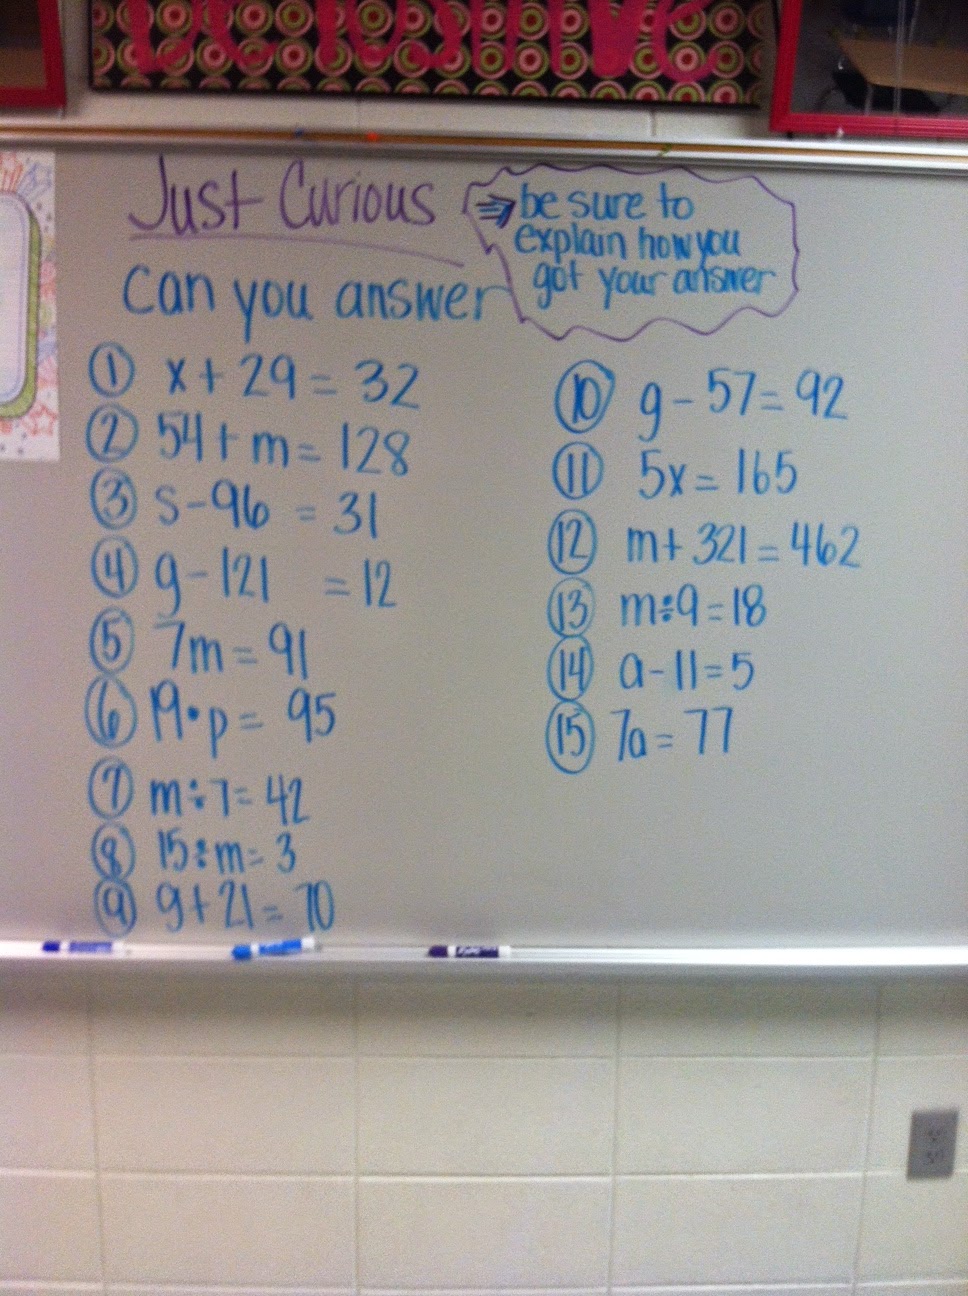 Just Curious
⇒ be sure to
explain how you
got your answer
Can you answer
① x + 29 = 32
② 54 + m = 128
③ s - 96 = 31
④ g - 121 = 12
⑤ 7m = 91
⑥ 19 • p = 95
⑦ m ÷ 7 = 42
⑧ 15 ÷ m = 3
⑨ g + 21 = 70
⑩ g - 57 = 92
⑪ 5x = 165
⑫ m + 321 = 462
⑬ m ÷ 9 = 18
⑭ a - 11 = 5
⑮ 7a = 77